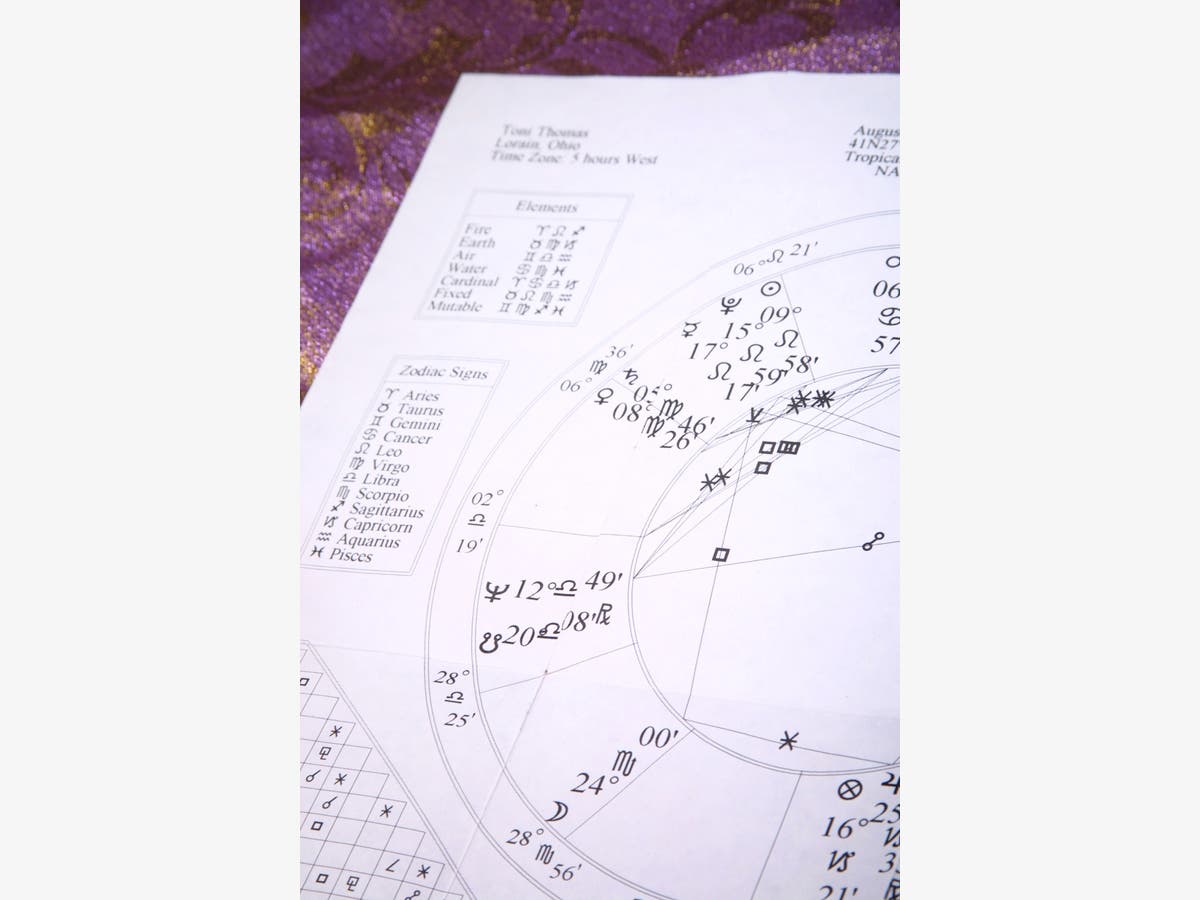 Toni Thomas
Lorain, Ohio
Time Zone: 5 hours West
Augus
41N27
Tropica
NA
Elements
Fire ♈ ♌ ♐
Earth ♉ ♍ ♑
Air ♊ ♎ ♒
Water ♋ ♏ ♓
Cardinal ♈ ♋ ♎ ♑
Fixed ♉ ♌ ♏ ♒
Mutable ♊ ♍ ♐ ♓
Zodiac Signs
♈ Aries
♉ Taurus
♊ Gemini
♋ Cancer
♌ Leo
♍ Virgo
♎ Libra
♏ Scorpio
♐ Sagittarius
♑ Capricorn
♒ Aquarius
♓ Pisces
06° ♌ 21'
☉ 09° ♌ 58'
15° ♌ 59'
☿ 17° ♌ 17'
06
♋
57
06° ♍ 36'
♄ 05° ♍ 46'
♀ 08° ♍ 26'
02° ♎ 19'
♆ 12° ♎ 49'
☋ 20 ♎ 08' ℞
28° ♎ 25'
☽ 24° ♏ 00'
28° ♏ 56'
⊗ 16° ♑ 21'
♃ 25 ♑ 3 ℞